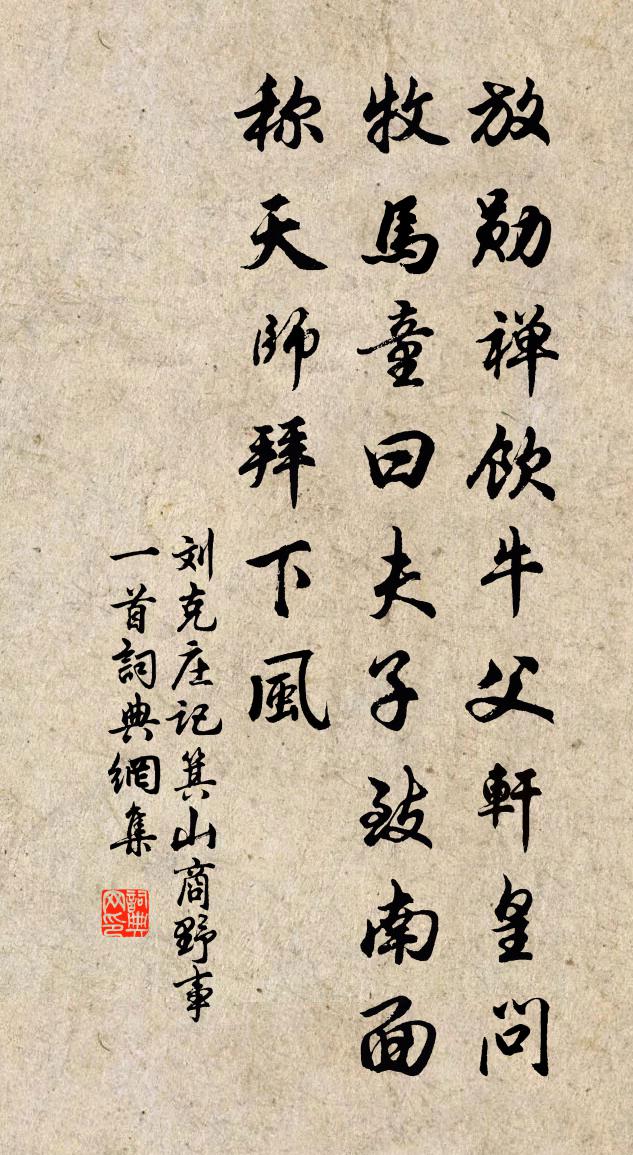 放勋禅饮牛父軒皇问
牧馬童曰夫子致南面
称天师拜下風
刘克庄记箕山商野事
一首詞典網集
詞典网印